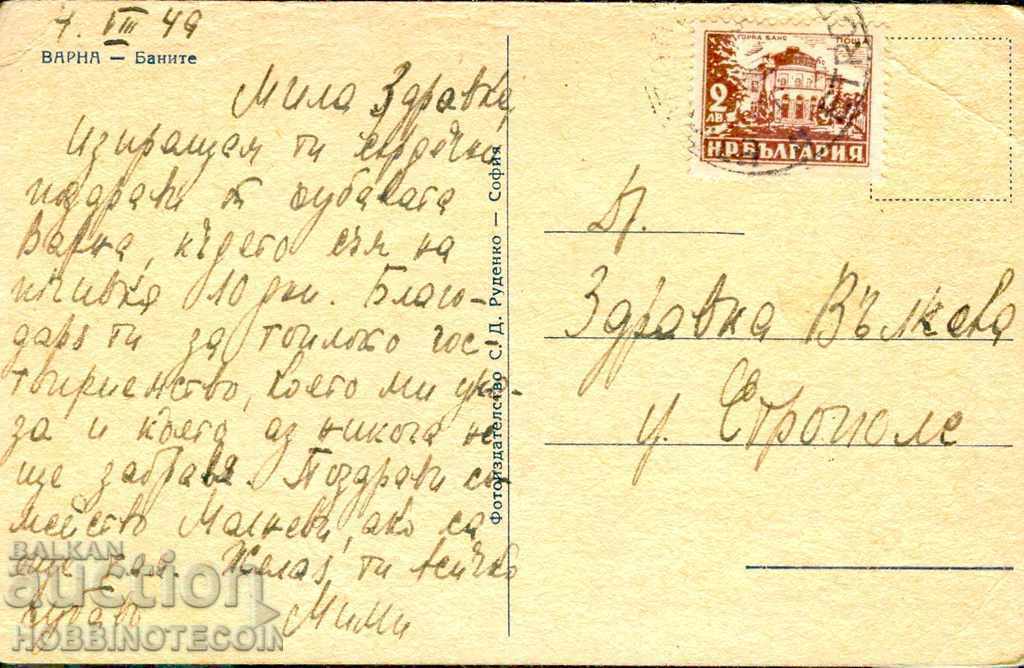 7. VIII 49
ВАРНА — Баните
Мила Здравка,
Изпращам ти сърдечни
поздрави от хубавата
Варна, където съм на
почивка 10 дни. Благо-
даря ти за топлото гос-
топриемство, което ми ука-
за и което аз никога не
ще забравя. Поздрави се-
мейство Малчеви, ако са
още там. Желая ти всичко
хубаво Мими
Фотоиздателство С. Д. Руденко — София
ГОРНА БАНЯ ПОЩА
2
ЛВ.
Н.Р.БЪЛГАРИЯ
Др.
Здравка Вълкева
гр. Етрополе
BALKAN
auction
HOBBINOTECOIN